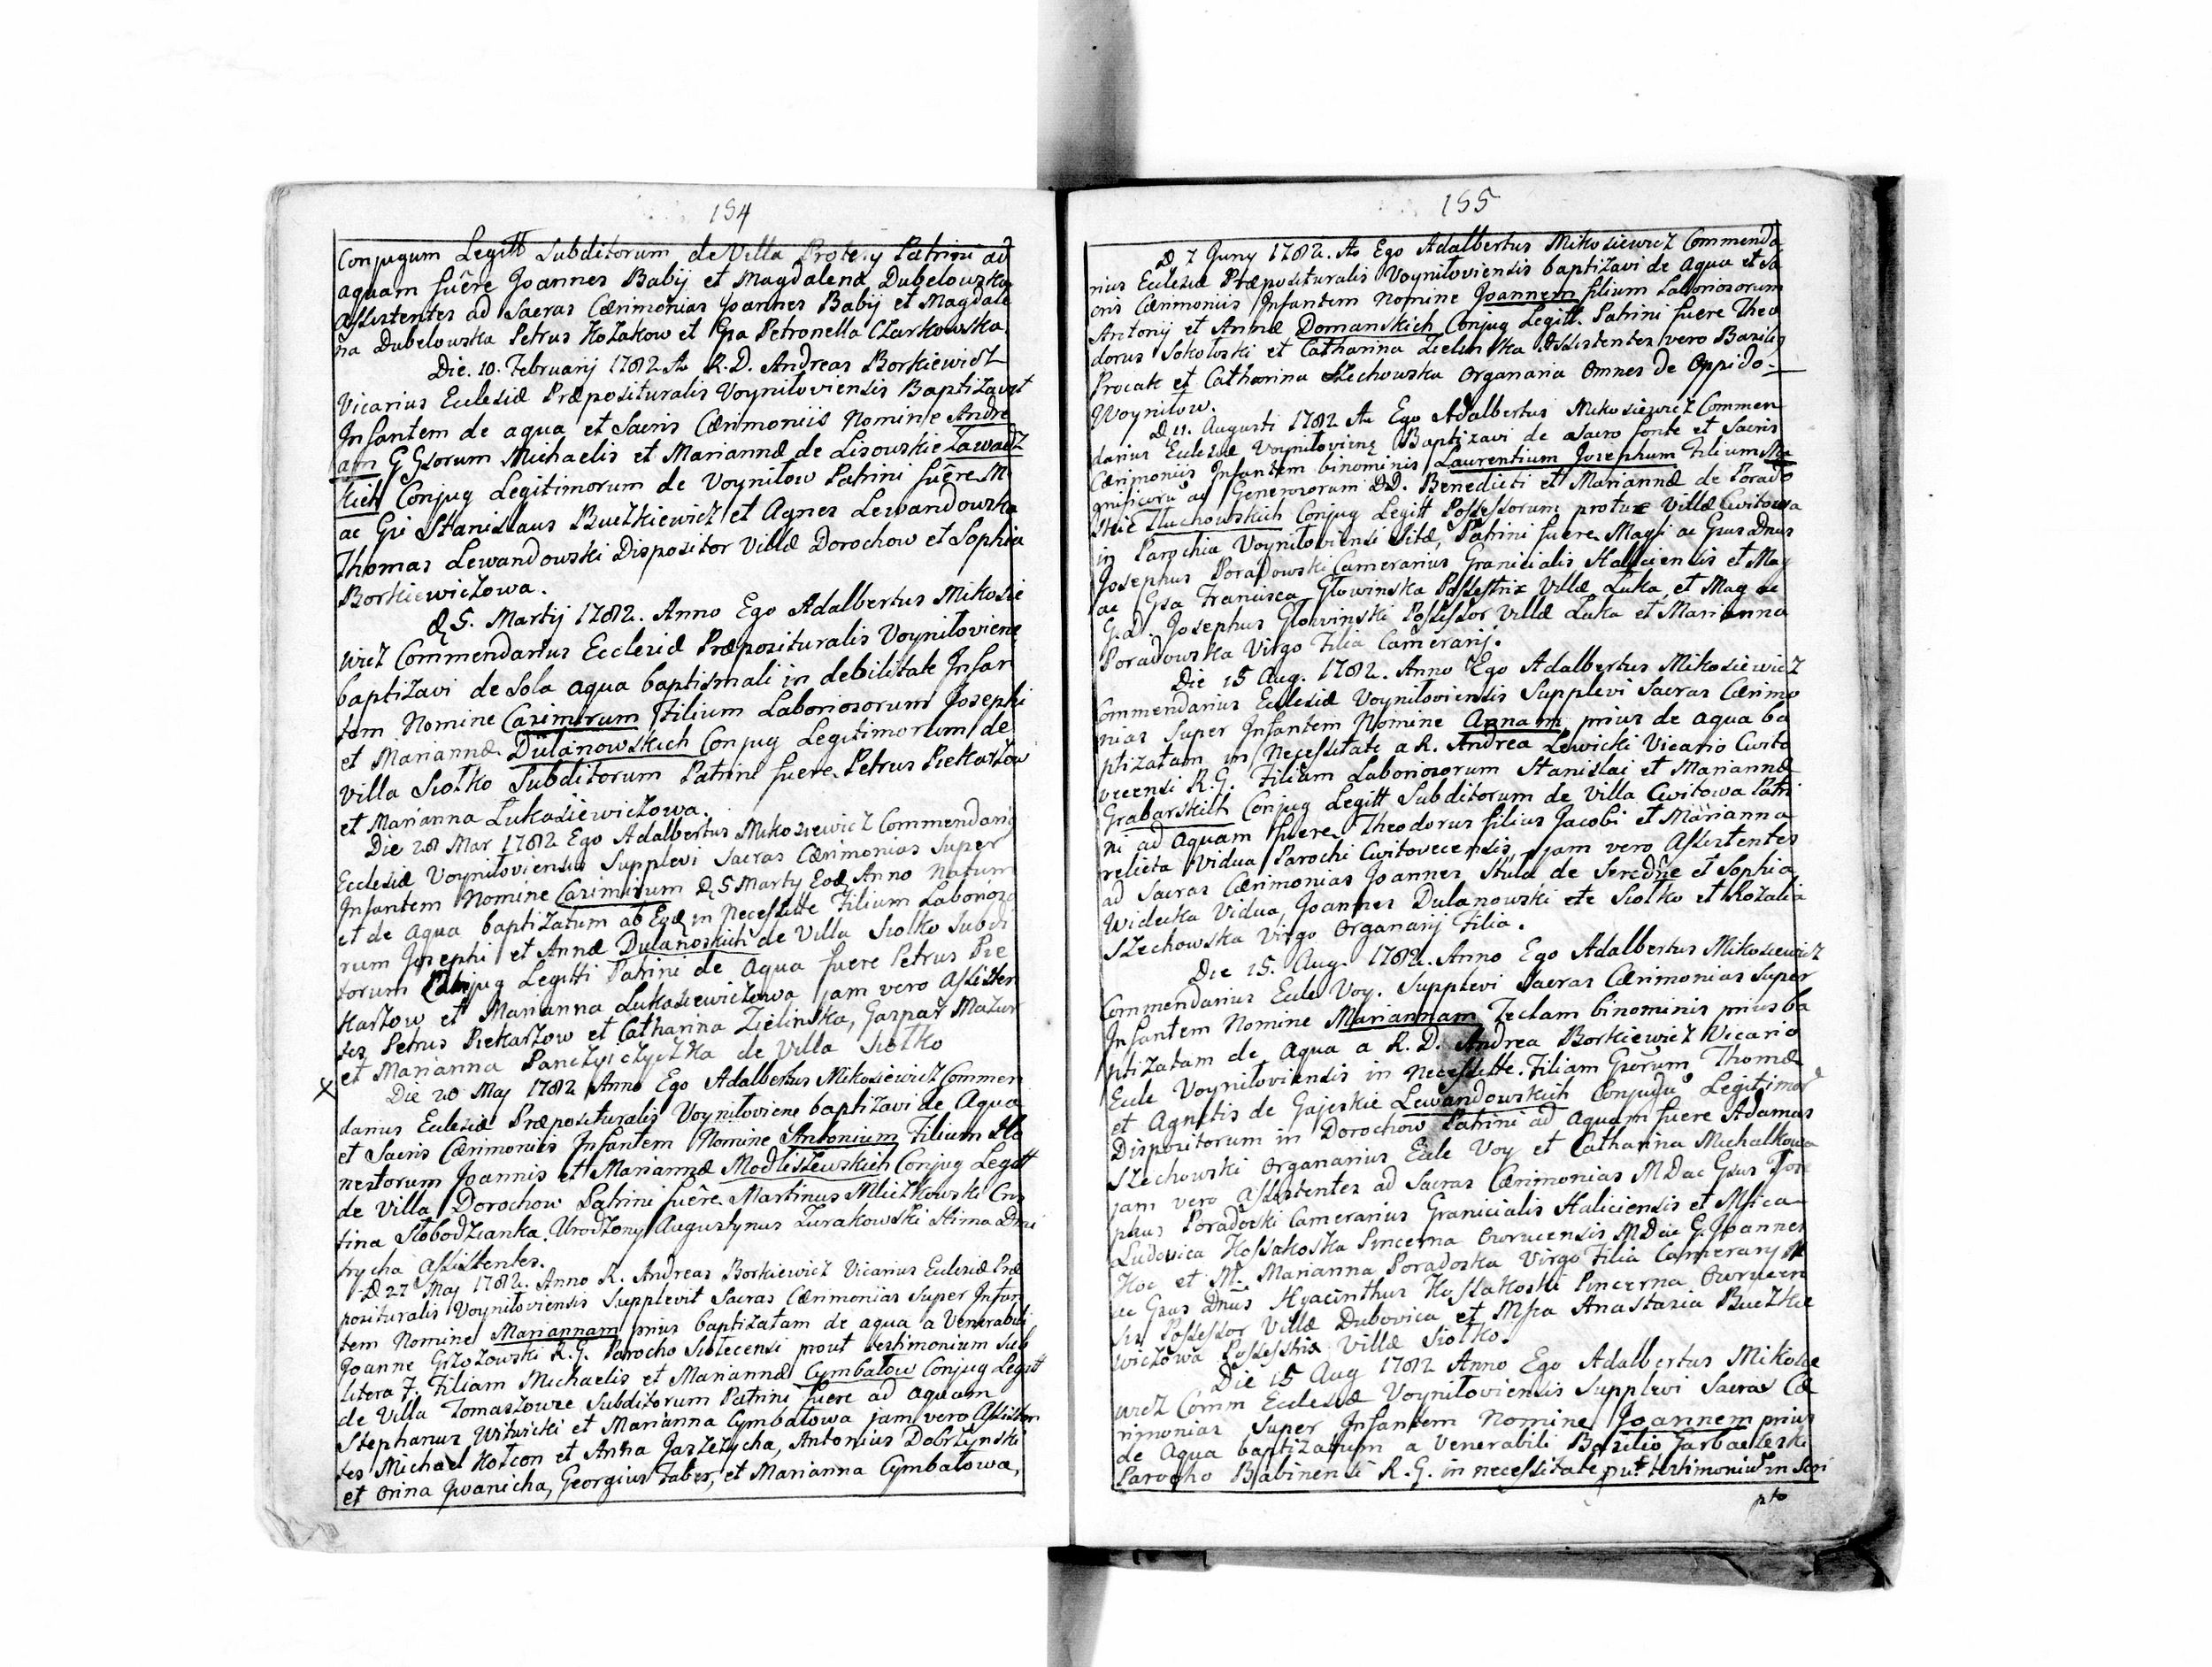 154
Conjugum Legitt Subditorum de Villa Protesy Patrini ad
aquam fuêre Joannes Babij et Magdalena Dubelowska
Assistentes ad Sacras Cærimonias Joannes Babij et Magdale
na Dubelowska Petrus Kozakow et Gsa Petronella Czarkowska
Die. 10. Februarij 1782 Ao R.D. Andreas Borkiewicz
Vicarius Ecclesiæ Præposituralis Voyniloviensis Baptizavit
Infantem de aqua et Sacris Cærimoniis Nomine Andre
am G Gsorum Michaelis et Mariannæ de Lisowskie Zawadz
kich Conjug Legitimorum de Voyniłow Patrini fuêre M
ac Gsi Stanislaus Buczkiewicz et Agnes Lewandowska
Thomas Lewandowski Dispositor Villæ Dorochow et Sophia
Borkiewiczowa.
D 5. Martij 1782. Anno Ego Adalbertus Mikosie
wicz Commendarius Ecclesiæ Præposituralis Voyniloviens
baptizavi de Sola aqua baptismali in debilitate Infan
tem Nomine Casimirum Filium Laboriosorum Josephi
et Mariannæ Dulanowskich Conjug Legitimorum de
Villa Siołko Subditorum Patrini fuere Petrus Piekarzow
et Marianna Lukasiewiczowa.
Die 28 Mar 1782 Ego Adalbertus Mikosiewicz Commendariq
Ecclesiæ Voyniloviensis Supplevi Sacras Cærimonias Super
Infantem Nomine Casimirum D 5 Marty Eod Anno Natum
et de Aqua baptizatum ab Eod in Necessitte Filium Laborioso
rum Josephi et Annæ Dulanoskich de Villa Siolko Subdi
torum Conjug Legitti Patrini de Aqua fuere Petrus Pie
karzow et Marianna Lukasiewiczowa jam vero Assisten
tes Petrus Piekarzow et Catharina Zielinska, Gaspar Mazur
et Marianna de Villa Siołko
X Die 20 May 1782 Anno Ego Adalbertus Mikosiewicz Commen
darius Ecclesiæ Præposituralis Voyniłoviens baptizavi de Aqua
et Sacris Cærimoniis Infantem Nomine Antonium Filium Ho
nestorum Joannis et Mariannæ Modliszewskich Conjug Legitt
de Villa Dorochow Patrini fuêre Martinus Miczkowski Cris
tina Słobodzianka. Urodzony Augustynus Zurakowski Dmi
trycha Assistentes.
D 27 May 1782. Anno R. Andreas Borkiewicz Vicarius Ecclesiæ Præ
posituralis Voyniłoviensis Supplevit Sacras Cærimonias Super Infan
tem Nomine Mariannam prius baptizatam de aqua a Venerabili
Joanne R.G. Parocho Siolecensi prout testimonium sub
litera 7. Filiam Michaelis et Mariannæ Cymbałow Conjug Legitt
de Villa Tomaszowce Subditorum Patrini fuere ad aquam
Stephanus Witwicki et Marianna Cymbałowa jam vero Assisten
tes Michael Kotcon et Anna Jaszczycha, Antonius Dobrzynski
et Orina Iwanicha, Georgius Faber, et Marianna Cymbałowa,
155
D 7 Juny 1782. Ao Ego Adalbertus Mikosiewicz Commenda
rius Ecclesiæ Præposituralis Voyniłoviensis baptizavi de Aqua et Sa
cris Cærimoniis Infantem Nomine Joannem filium Laboriosorum
Antonij et Annæ Domanskich Conjug Legitt. Patrini fuere Theo
dorus Sokołoski et Catharina Zielinska Assistentes vero Basilis
Procak et Catharina Szechowska Organaria Omnes de Oppido
Woynilow.
D 11. Augusti 1782 Ao Ego Adalbertus Mikosiewicz Commen
darius Ecclesiæ Voyniłoviens Baptizavi de Sacro fonte et Sacris
Cærimoniis Infantem binominis Laurentium Josephum Filium Ma
gnificorū ac Generosorum DD. Benedicti et Mariannæ de Porado
skie Tluchowskich Conjug Legitt Possessorum protunc Villæ Cwitowa
in Parochia Voyniłoviensi Sitæ, Patrini fuere Magfi ac Gsus Dnus
Josephus Poradowski Camerarius Granicialis Haliciensis et Mag
ac Gsa Francisca Głowinska Possestrix Villæ Luka, et Mag ac
G.D. Josephus Głowinski Possessor Villæ Luka et Marianna
Poradowska Virgo Filia Camerarij.
Die 15 Aug. 1782. Anno Ego Adalbertus Mikosiewicz
Commendarius Ecclesiæ Voyniloviensis Supplevi Sacras Cærimo
nias Super Infantem Nomine Annam prius de aqua ba
ptizatam in Necessitate a R. Andrea Lewicki Vicario Cwito
vecensi R.G. Filiam Laboriosorum Stanislai et Mariannæ
Grabarskich Conjug Legitt Subditorum de Villa Cwitowa Patri
ni ad Aquam fuere Theodorus filius Jacobi et Marianna
relicta Vidua Parochi Cwitovecensis, jam vero Assistentes
ad Sacras Cærimonias Joannes Stula de Seredne et Sophia
Widecka Vidua, Joannes Dulanowski de Siołko et Rozalia
Szechowska Virgo Organarij Filia.
Die 15. Aug. 1782. Anno Ego Adalbertus Mikosiewicz
Commendarius Eccle Voy. Supplevi Sacras Cærimonias Super
Infantem Nomine Mariannam Teclam binominis prius ba
ptizatam de Aqua a R.D. Andrea Borkiewicz Vicario
Eccle Voyniloviensis in necessitte. Filiam Gsorum Thomæ
et Agnetis de Gajeskie Lewandowskich Conjugū Legitimor
Dispositorum in Dorochow Patrini ad Aquam fuere Adamus
Szechowski Organarius Eccle Voy et Catharina Michalkowa
jam vero Assistentes ad Sacras Cærimonias M D ac Gsus Jose
phus Poradoski Camerarius Granicialis Haliciensis et Mfica
Ludovica Kossakoska Pincerna Owrucensis M D ac G. Joannes
Hoc et M. Marianna Poradoska Virgo Filia Camerary M
ac Gsus Dnus Hyacinthus Kossakoski Pincerna Owrucen
sis Possessor Villæ Dubovica et Mfica Anastazia Buczkie
wiczowa Possestrix Villæ Siołko.
Die 15 Aug 1782 Anno Ego Adalbertus Mikosie
wicz Comm Ecclesiæ Voyniłoviensis Supplevi Sacras Cæ
rimonias Super Infantem Nomine Joannem prius
de Aqua baptizatum a Venerabili Basilio
Parocho Babinensi R.G. in necessitate put testimoniū in Scri
pto